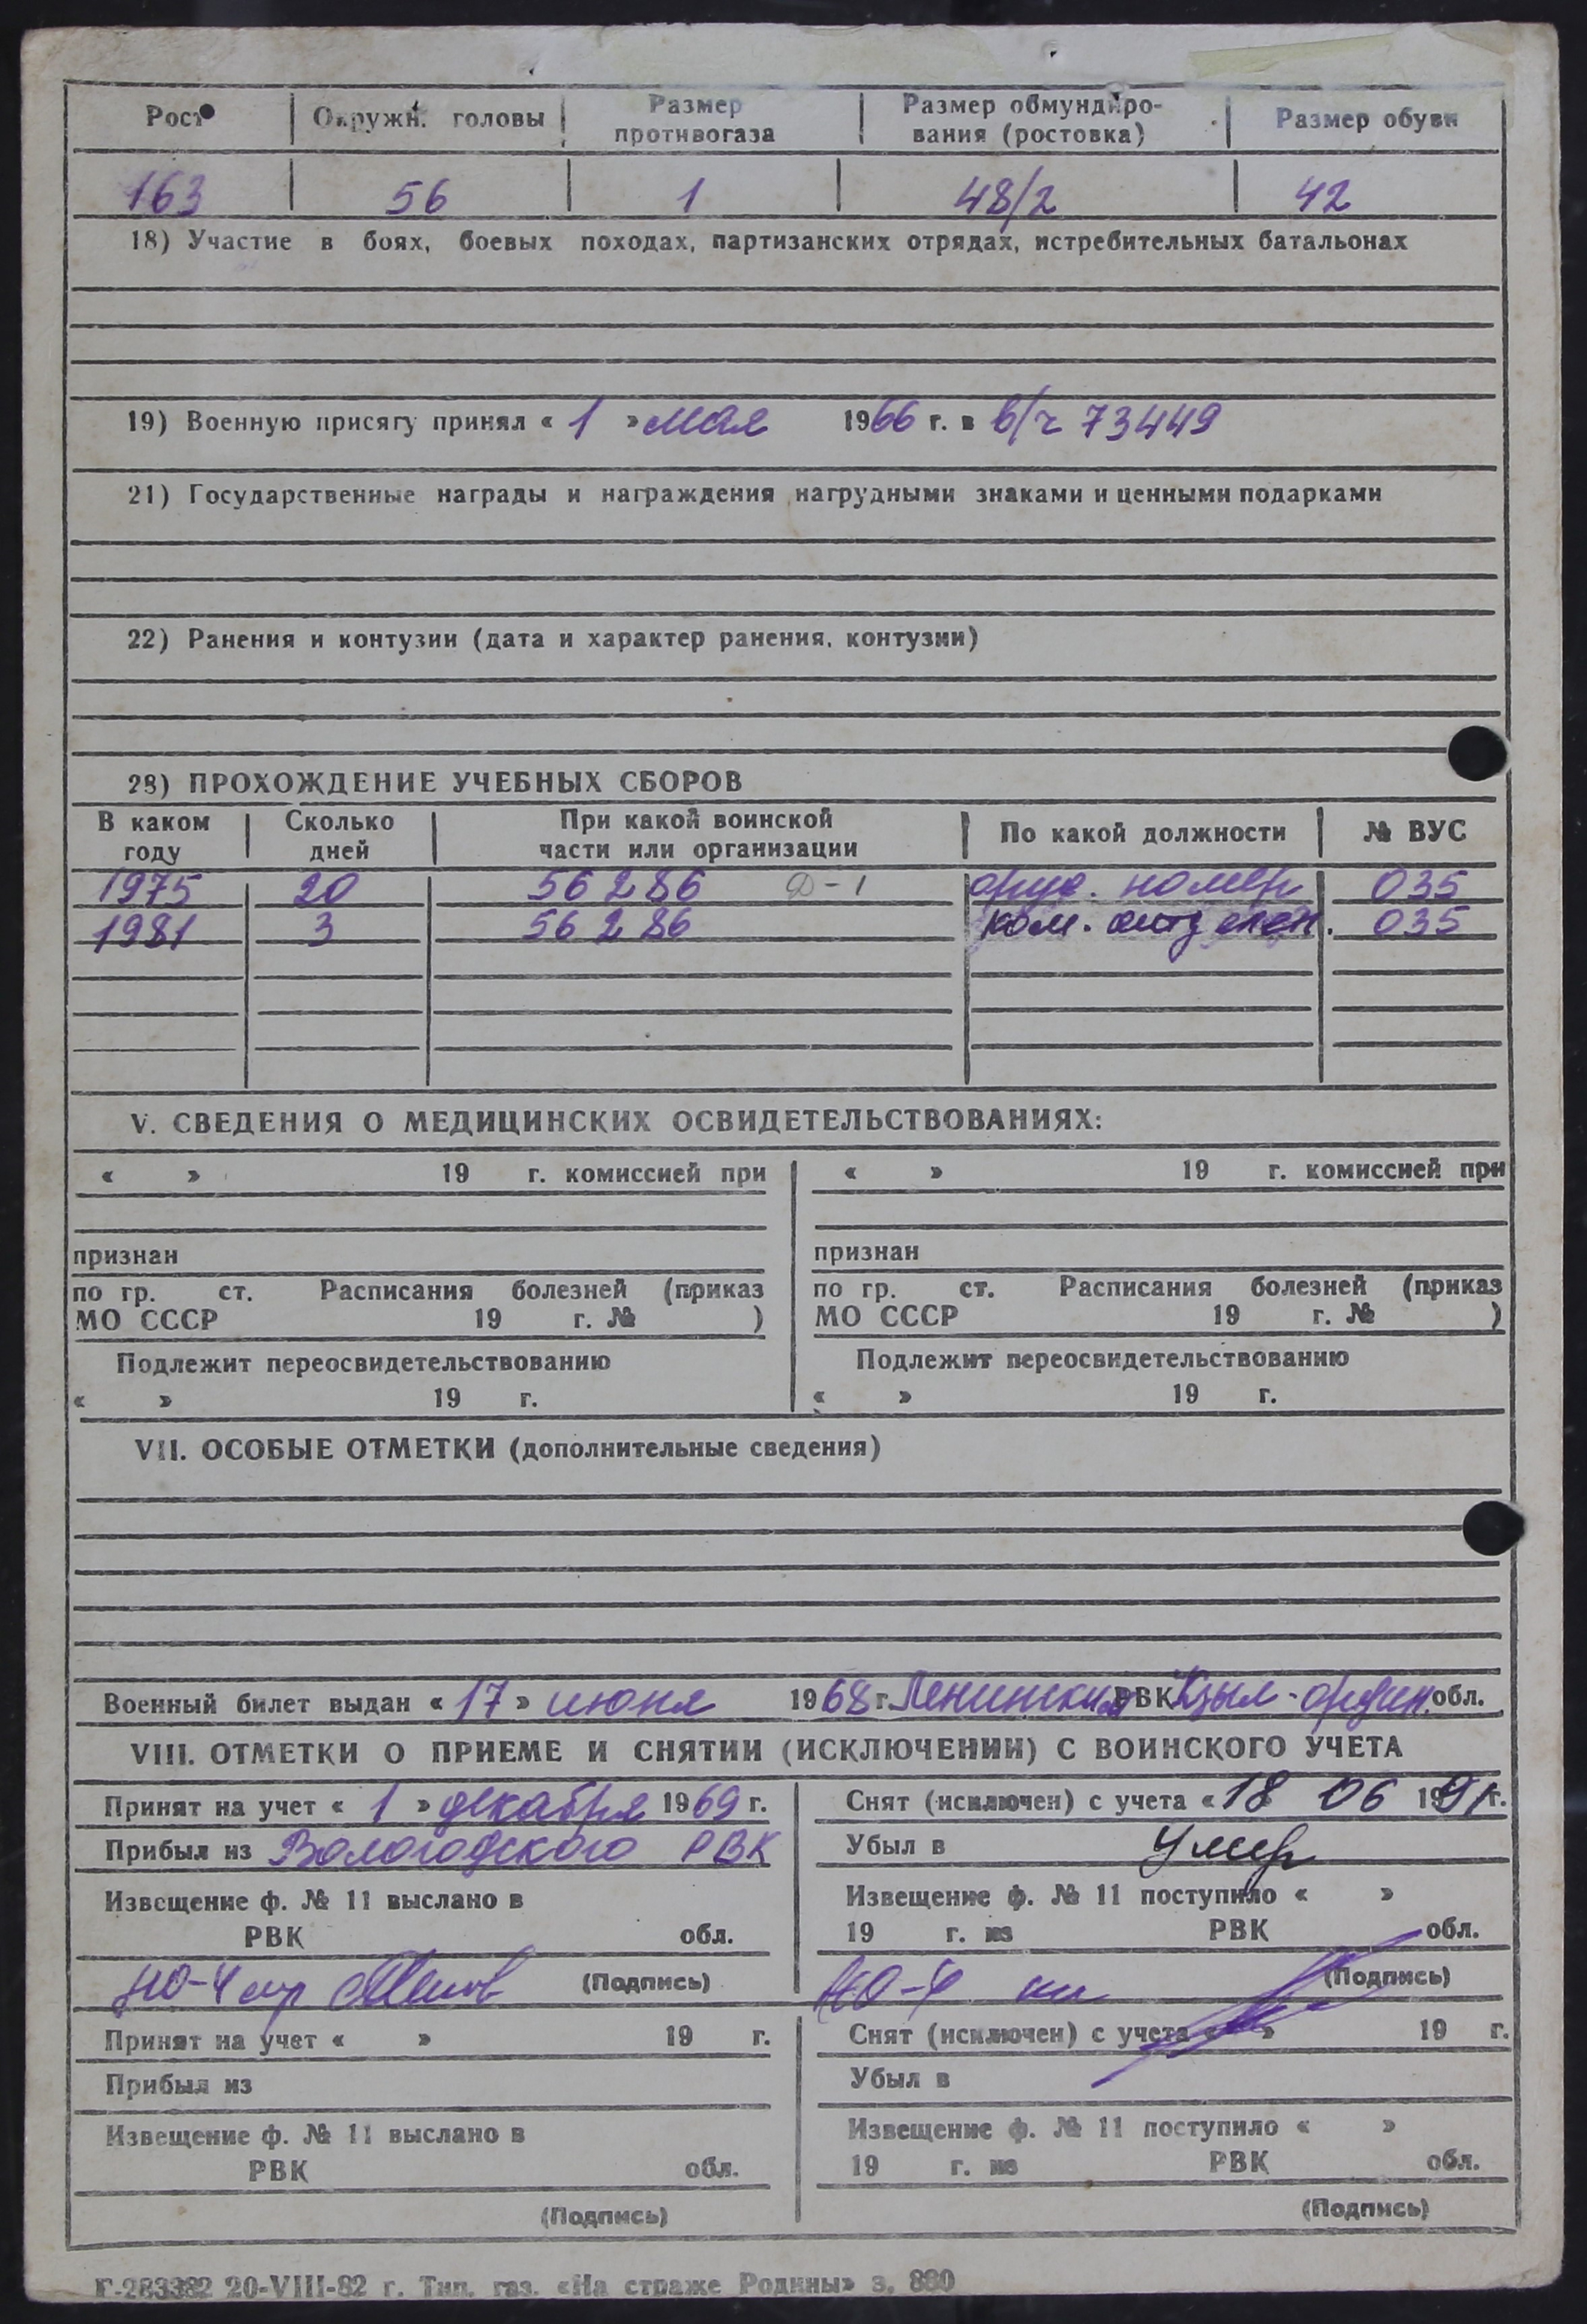 Рост Окружн. головы Размер противогаза Размер обмундиро-вания (ростовка) Размер обуви
163 56 1 48/2 42
18) Участие в боях, боевых походах, партизанских отрядах, истребительных батальонах
19) Военную присягу принял « 1 » мая 1966 г. в в/ч 73449
21) Государственные награды и награждения нагрудными знаками и ценными подарками
22) Ранения и контузии (дата и характер ранения, контузии)
23) ПРОХОЖДЕНИЕ УЧЕБНЫХ СБОРОВ
В каком году Сколько дней При какой воинской части или организации По какой должности № ВУС
1975 20 56286 Д-1 оруд. номер 035
1981 3 56286 ком. отделен. 035
V. СВЕДЕНИЯ О МЕДИЦИНСКИХ ОСВИДЕТЕЛЬСТВОВАНИЯХ:
« » 19 г. комиссией при
признан
по гр. ст. Расписания болезней (приказ
МО СССР 19 г. № )
Подлежит переосвидетельствованию
« » 19 г.
« » 19 г. комиссией при
признан
по гр. ст. Расписания болезней (приказ
МО СССР 19 г. № )
Подлежит переосвидетельствованию
« » 19 г.
VII. ОСОБЫЕ ОТМЕТКИ (дополнительные сведения)
Военный билет выдан « 17 » июня 1968 г. Ленинским РВК Кзыл-ордин. обл.
VIII. ОТМЕТКИ О ПРИЕМЕ И СНЯТИИ (ИСКЛЮЧЕНИИ) С ВОИНСКОГО УЧЕТА
Принят на учет « 1 » декабря 1969 г.
Прибыл из Вологодского РВК
Извещение ф. № 11 выслано в
РВК обл.
НО-4 (Подпись)
Снят (исключен) с учета « 18 06 1991 г.
Убыл в умер
Извещение ф. № 11 поступило « »
19 г. из РВК обл.
НО-4 (Подпись)
Принят на учет « » 19 г.
Прибыл из
Извещение ф. № 11 выслано в
РВК обл.
(Подпись)
Снят (исключен) с учета « » 19 г.
Убыл в
Извещение ф. № 11 поступило « »
19 г. из РВК обл.
(Подпись)
Г-283382 20-VIII-82 г. Тип. газ. «На страже Родины» з. 880